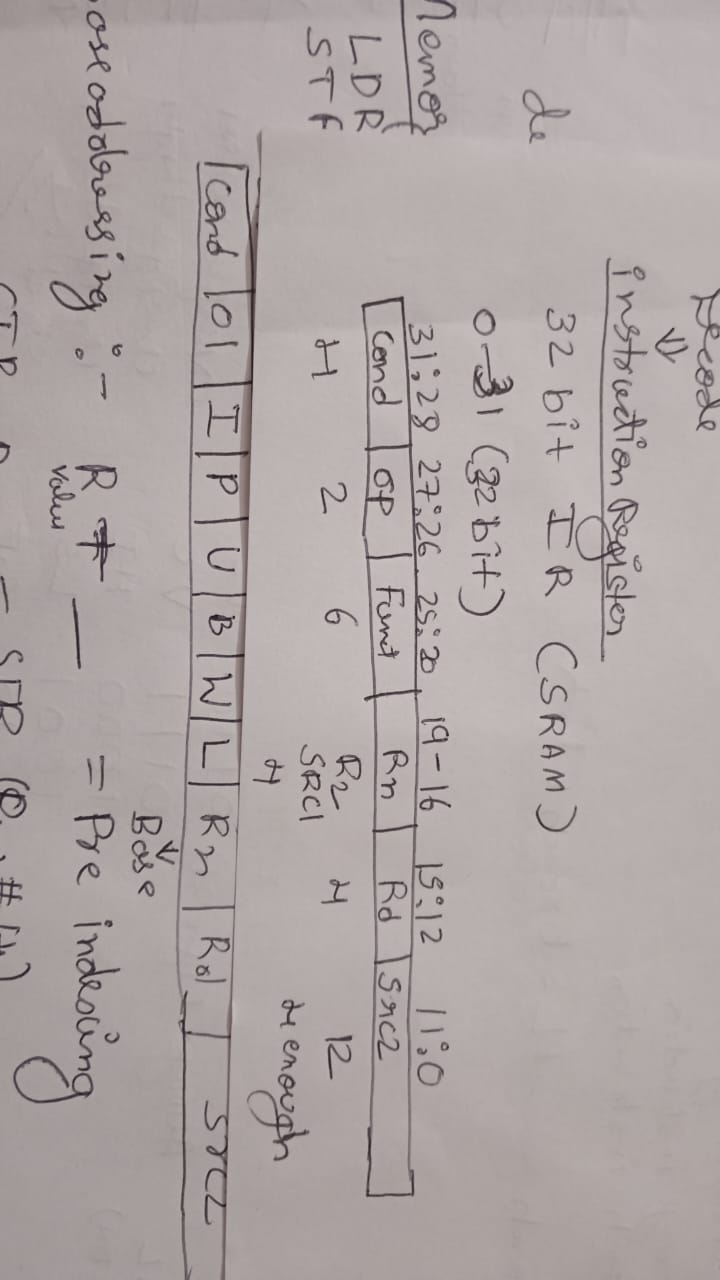 Decode
⇓
instruction Register
32 bit IR (SRAM)
de
0-31 (32 bit)
31:28 27:26 25:20 19-16 15:12 11:0
Cond | OP | Funct | Rn | Rd | Src2
4 2 6 R2 4 12
SRC1
4 4 enough
Memory
LDR
STR
Cond | 01 | I | P | U | B | W | L | Rn | Rd | Src2
Base
ose addressing :- R — = Pre indexing
value
= STR